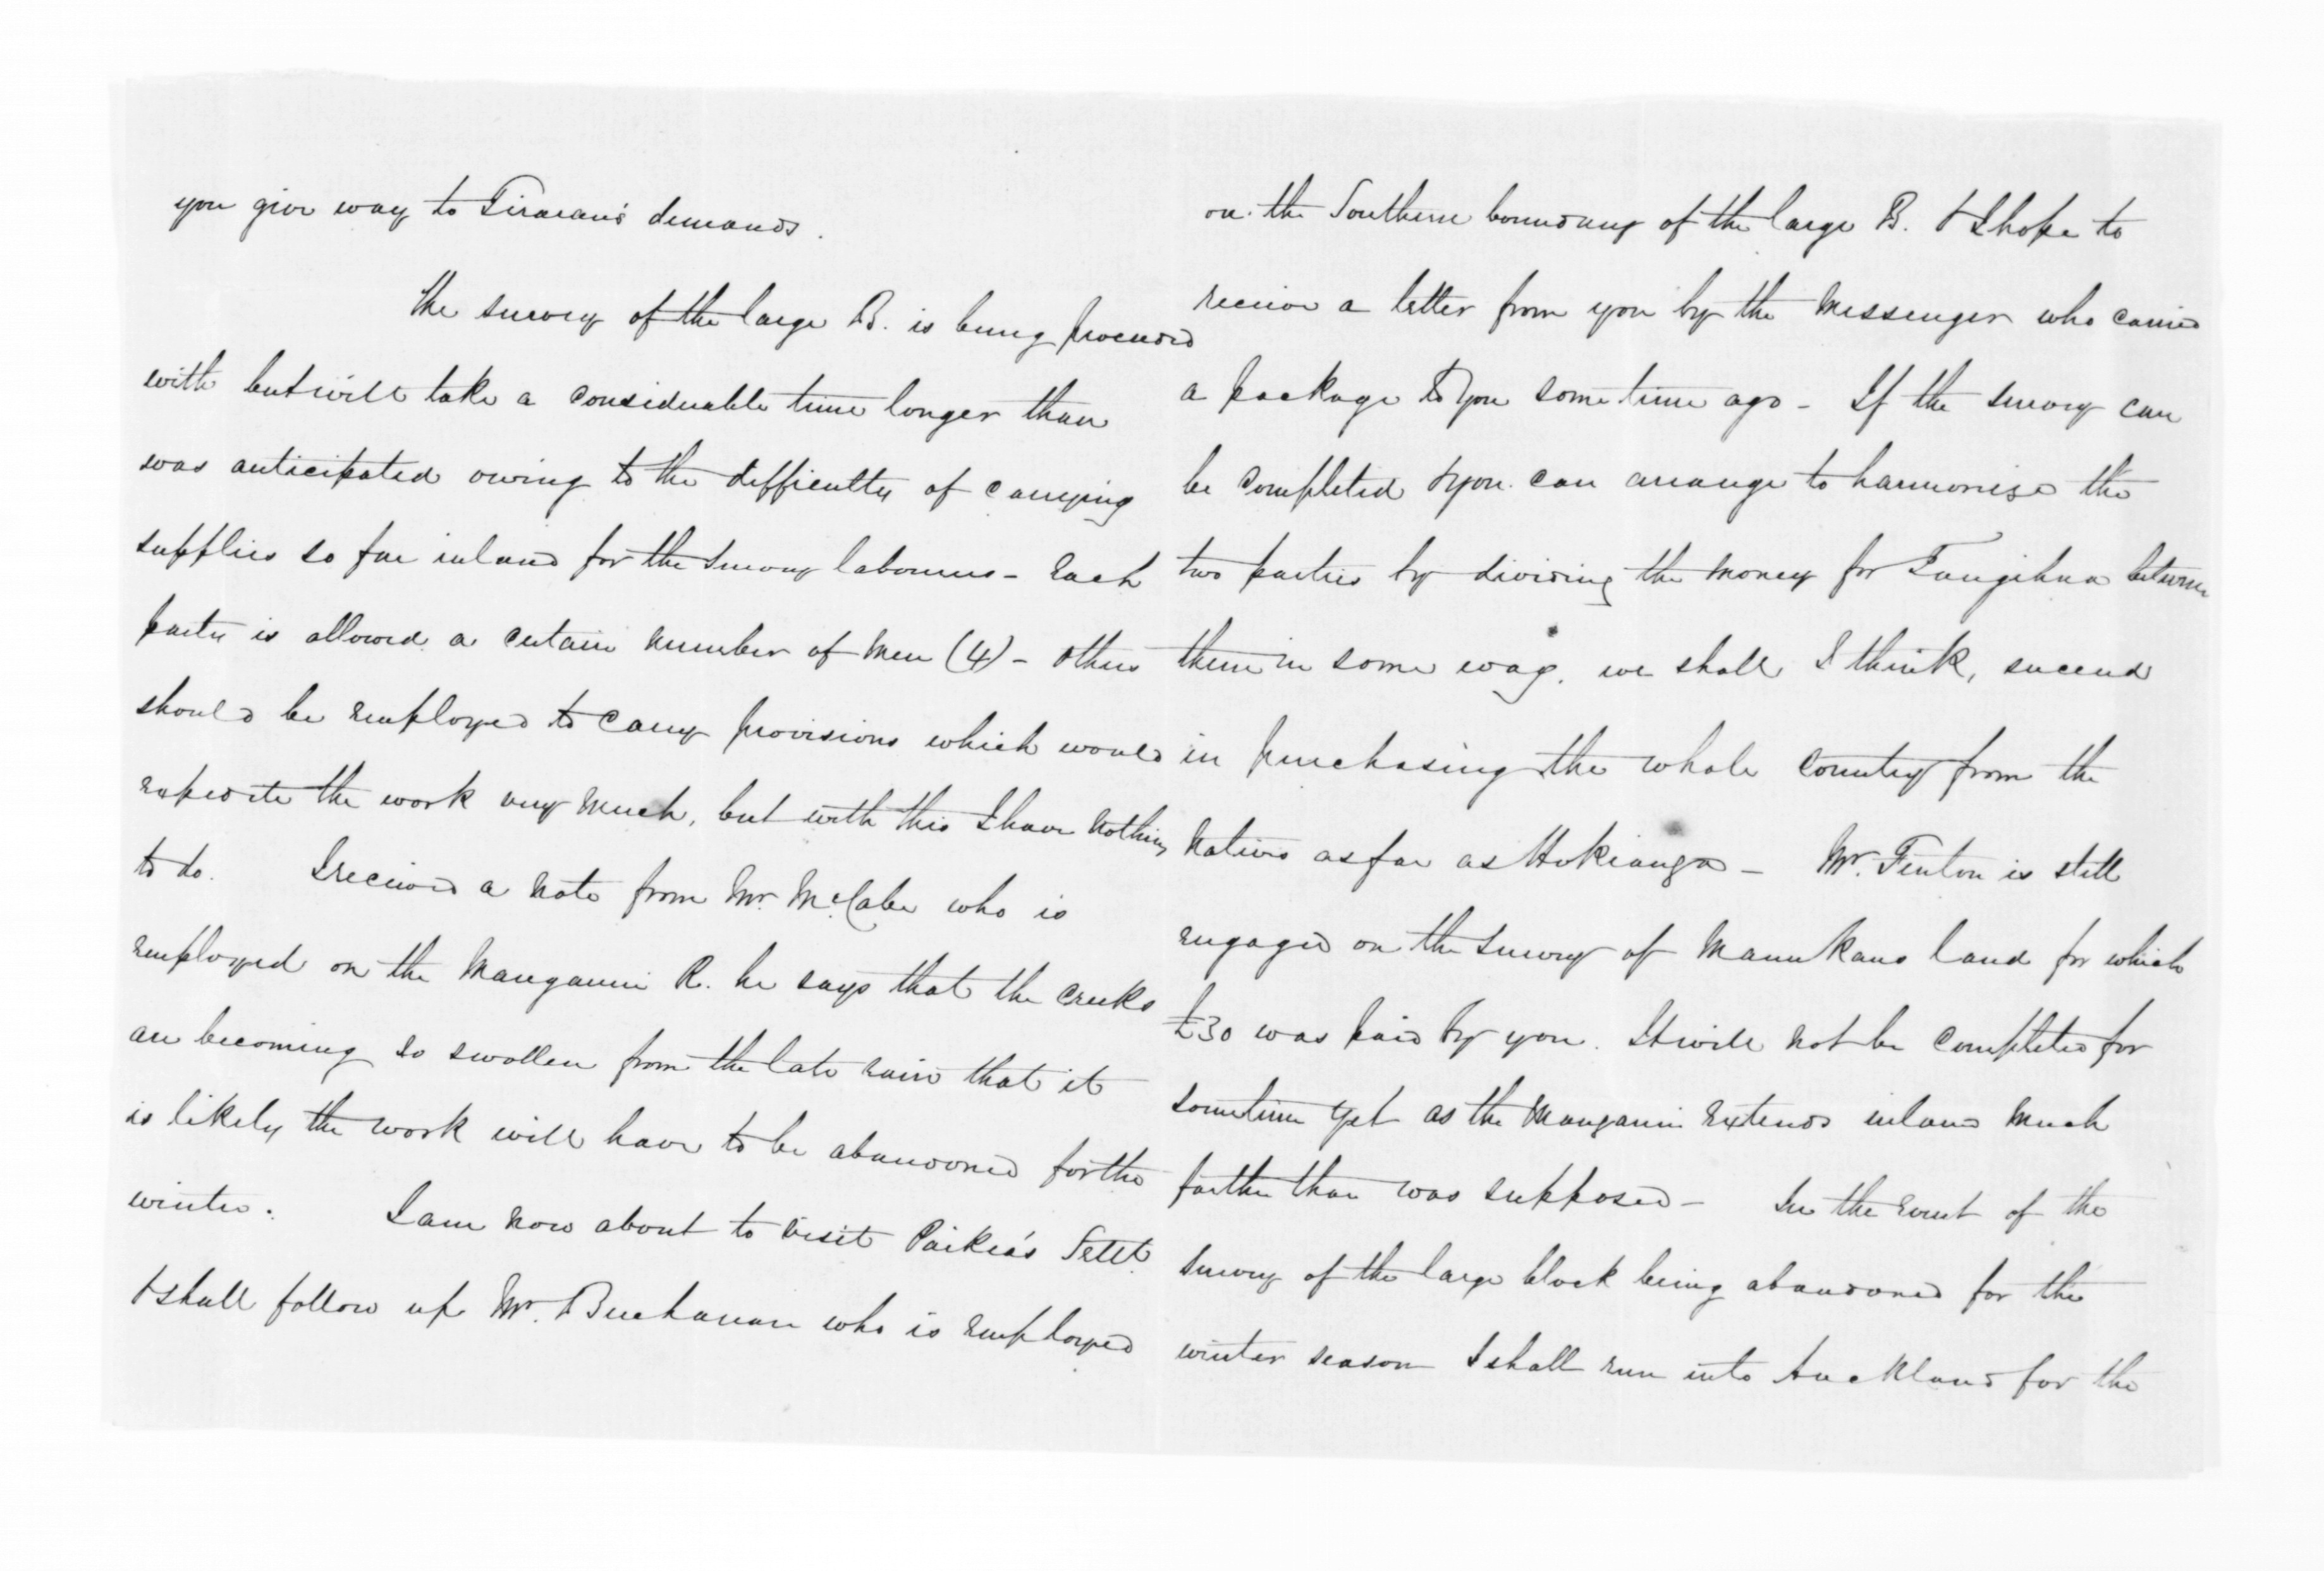 you give way to Tirarau's demands.
The survey of the large B. is being proceeded
with but will take a considerable time longer than
was anticipated owing to the difficulty of carrying
supplies so far inland for the survey labourers - Each
party is allowed a certain number of men (4) - others
should be employed to carry provisions which would
expedite the work very much, but with this I have nothing
to do. I received a note from Mr. McCabe who is
employed on the Manganui R. he says that the creeks
are becoming so swollen from the late rain that it
is likely the work will have to be abandoned for the
winter. I am now about to visit Paikea's Settt.
& shall follow up Mr. Buchanan who is employed
on the Southern boundary of the large B. & I hope to
receive a letter from you by the messenger who carried
a package to you some time ago - If the survey can
be completed & you can arrange to harmonise the
two parties by dividing the money for Tangihua between
them in some way, we shall I think, succeed
in purchasing the whole country from the
natives as far as Hokianga - Mr. Fenton is still
engaged on the survey of Manukaus land for which
£30 was paid by you. It will not be completed for
sometime yet as the Manganui extends inland much
farther than was supposed - In the event of the
survey of the large block being abandoned for the
winter season I shall run into Auckland for the